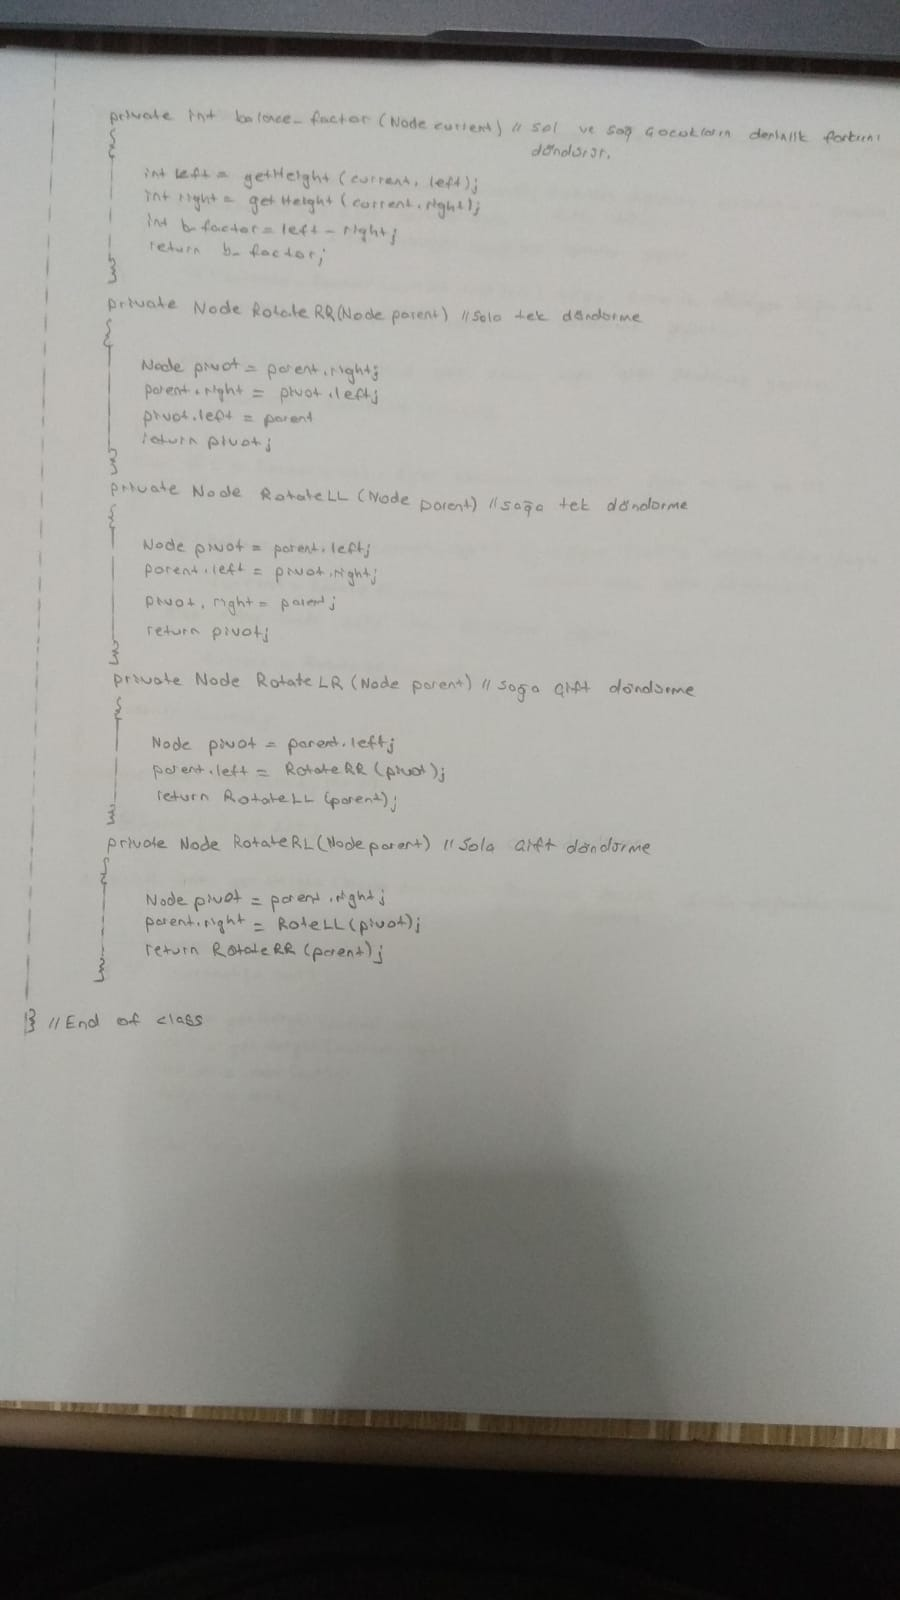 private int balance_factor (Node current) // sol ve sağ çocukların derinlik farkını
döndürür.
{
int left = getHeight (current.left);
int right = getHeight (current.right);
int b_factor = left - right;
return b_factor;
}
private Node RotateRR(Node parent) // Sola tek döndürme
{
Node pivot = parent.right;
parent.right = pivot.left;
pivot.left = parent
return pivot;
}
private Node RotateLL (Node parent) // sağa tek döndürme
{
Node pivot = parent.left;
parent.left = pivot.right;
pivot.right = parent;
return pivot;
}
private Node RotateLR (Node parent) // sağa çift döndürme
{
Node pivot = parent.left;
parent.left = RotateRR (pivot);
return RotateLL (parent);
}
private Node RotateRL (Node parent) // Sola çift döndürme
{
Node pivot = parent.right;
parent.right = RoteLL (pivot);
return RotateRR (parent);
}
} // End of class